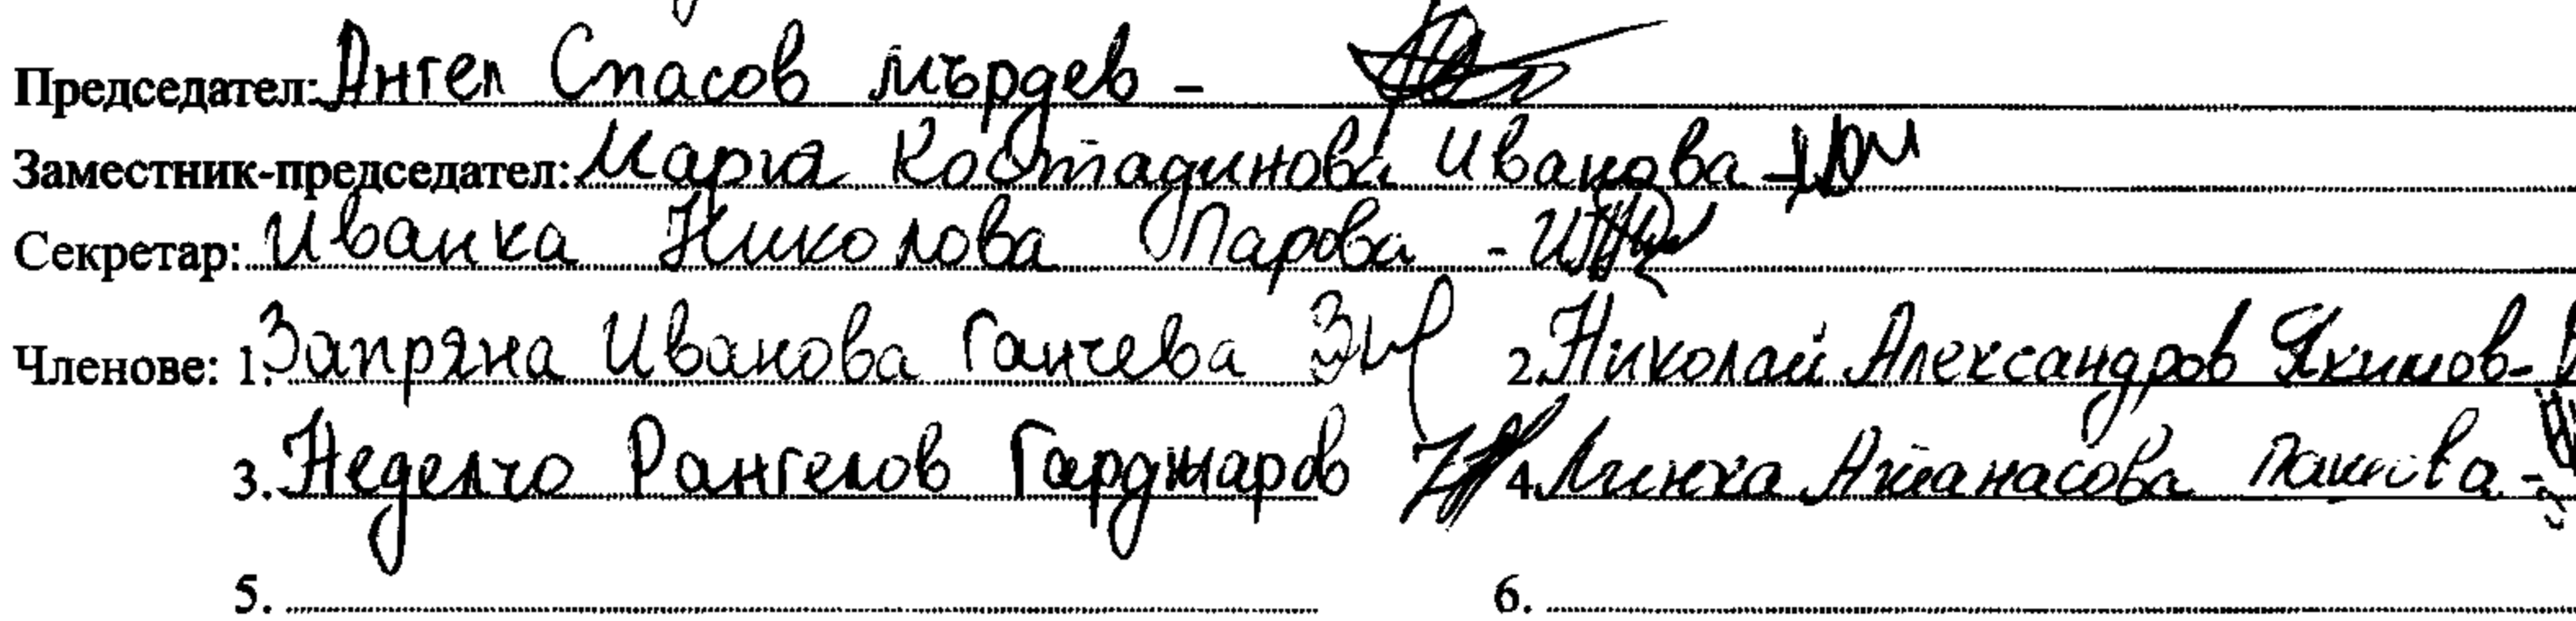 Председател: Ангел Спасов Мърдев -
Заместник-председател: Мария Костадинова Иванова -
Секретар: Иванка Николова Парова -
Членове: 1. Запряна Иванова Ганчева 2. Николай Александров Якимов -
3. Неделчо Рангелов Гарджаров 4. Минка Атанасова -
5. 6.